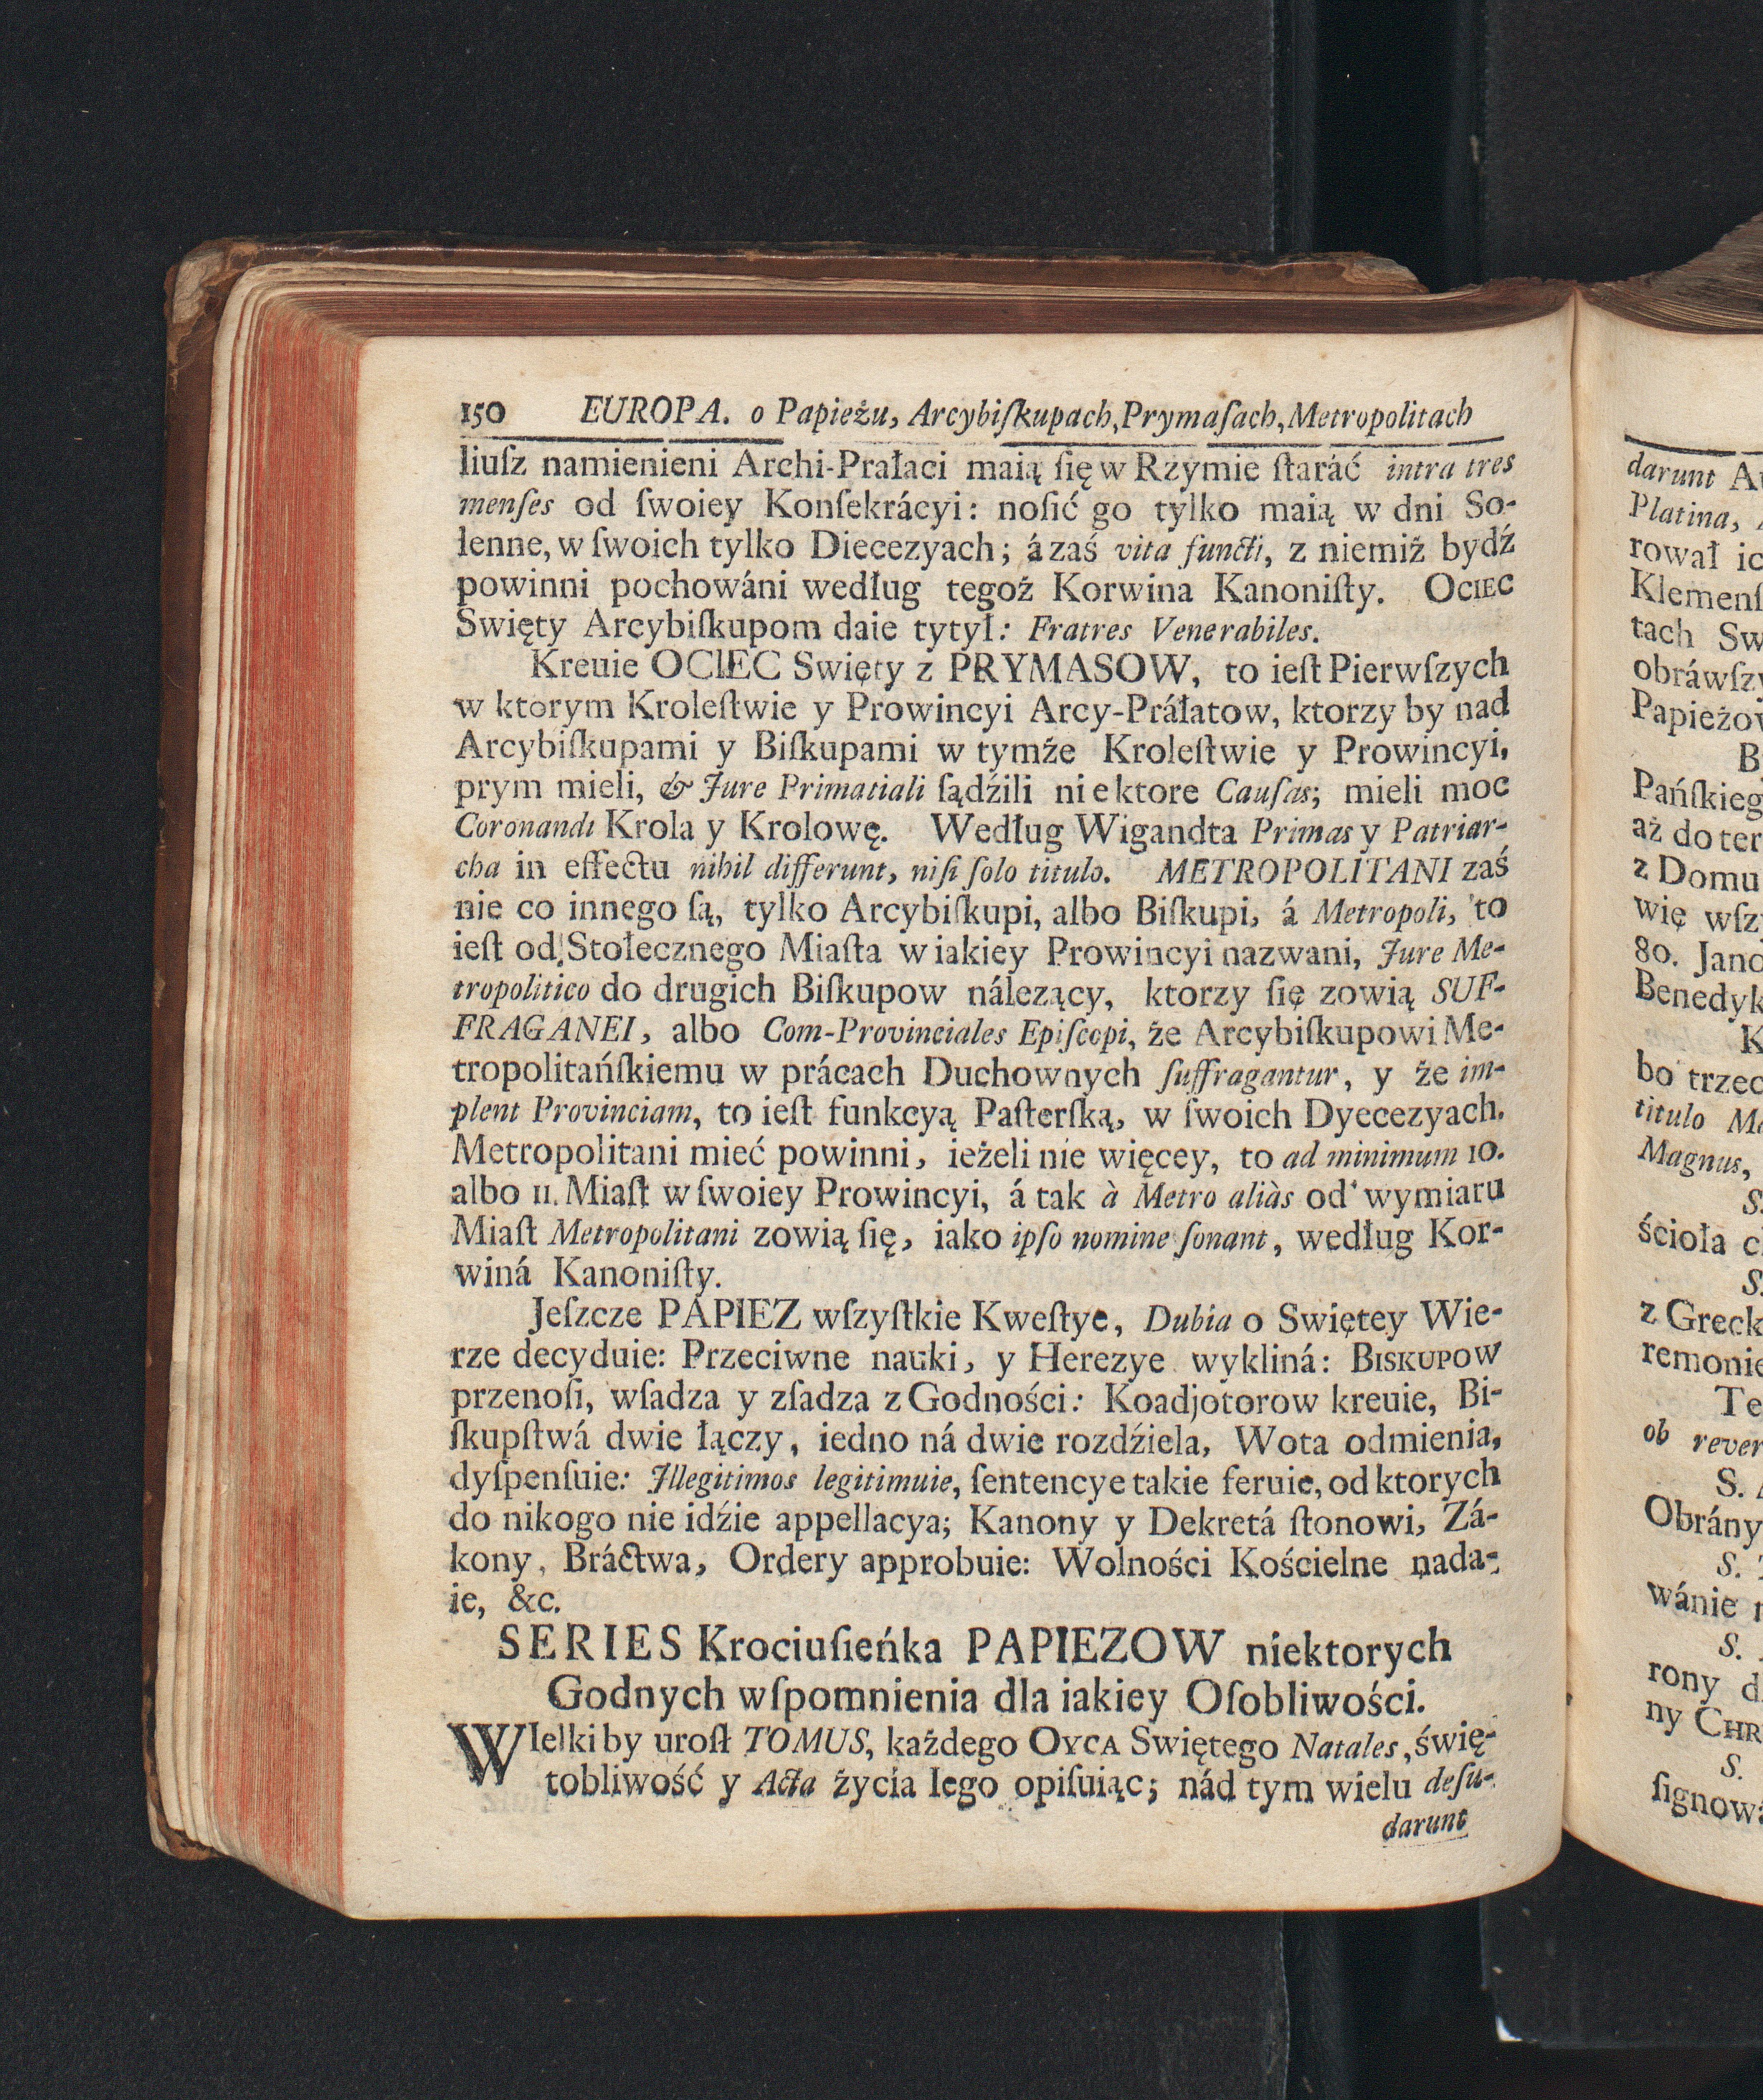 150 EUROPA. o Papieżu, Arcybiſkupach, Prymaſach, Metropolitach
liuſz namienieni Archi-Prałaci maią ſię w Rzymie ſtaráć intra tres
menſes od ſwoiey Konſekrácyi: noſić go tylko maią w dni So-
lenne, w ſwoich tylko Diecezyach; á zaś vita functi, z niemiż bydź
powinni pochowáni według tegoż Korwina Kanoniſty. OCIEC
Swięty Arcybiſkupom daie tytył: Fratres Venerabiles.
Kreuie OCIEC Swięty z PRYMASOW, to ieſt Pierwſzych
w ktorym Kroleſtwie y Prowincyi Arcy-Práłatow, ktorzy by nad
Arcybiſkupami y Biſkupami w tymże Kroleſtwie y Prowincyi,
prym mieli, & Jure Primatiali ſądźili niektore Cauſas; mieli moc
Coronandi Krola y Krolowę. Według Wigandta Primas y Patriar-
cha in effectu nihil differunt, niſi ſolo titulo. METROPOLITANI zaś
nie co innego ſą, tylko Arcybiſkupi, albo Biſkupi, á Metropoli, to
ieſt od Stołecznego Miaſta w iakiey Prowincyi nazwani, Jure Me-
tropolitico do drugich Biſkupow nálezący, ktorzy ſię zowią SUF-
FRAGANEI, albo Com-Provinciales Epiſcopi, że Arcybiſkupowi Me-
tropolitańſkiemu w prácach Duchownych ſuffragantur, y że im-
plent Provinciam, to ieſt funkcyą Paſterſką, w ſwoich Dyecezyach.
Metropolitani mieć powinni, ieżeli nie więcey, to ad minimum 10.
albo 11. Miaſt w ſwoiey Prowincyi, á tak à Metro aliàs od wymiaru
Miaſt Metropolitani zowią ſię, iako ipſo nomine ſonant, według Kor-
winá Kanoniſty.
Jeſzcze PAPIEZ wſzyſtkie Kweſtye, Dubia o Swiętey Wie-
rze decyduie: Przeciwne nauki, y Herezye wykliná: BISKUPOW
przenoſi, wſadza y zſadza z Godności: Koadjotorow kreuie, Bi-
ſkupſtwá dwie łączy, iedno ná dwie rozdźiela, Wota odmienia,
dyſpenſuie: Illegitimos legitimuie, ſentencye takie feruie, od ktorych
do nikogo nie idźie appellacya; Kanony y Dekretá ſtonowi, Zá-
kony, Bráctwa, Ordery approbuie: Wolności Kościelne nada-
ie, &c.
SERIES Krociuſieńka PAPIEZOW niektorych
Godnych wſpomnienia dla iakiey Oſobliwości.
WIelki by uroſł TOMUS, każdego OYCA Swiętego Natales, świę-
tobliwość y Acta życia Iego opiſuiąc; nád tym wielu deſu-
darunt
darunt
Platina,
rował
Klemenſ
tach
obráwſzy
Papieżow
Pańſkieg
aż do
z Domu
wię
80.
Benedyk
bo
titulo
Magnus,
S.
ścioła
S.
z Greck
remonie
Te
ob
S.
Obrány
S.
wánie
S.
rony
ny CHR
S.
ſignowa